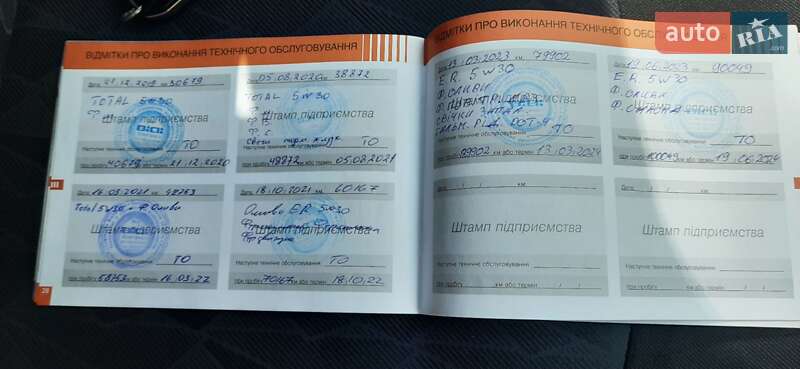 ВІДМІТКИ ПРО ВИКОНАННЯ ТЕХНІЧНОГО ОБСЛУГОВУВАННЯ
Дата 21.12.2019 км 30679
TOTAL 5W30
Штамп підприємства
Наступне технічне обслуговування ТО
при пробігу 40679 км або термін 21.12.2020
Дата 05.08.2020 км 38872
TOTAL 5W30
Штамп підприємства
Наступне технічне обслуговування ТО
при пробігу 48872 км або термін 05.08.2021
Дата 16.03.2021 км 48753
Total 5W30 + Ф. Оливи
Штамп підприємства
Наступне технічне обслуговування ТО
при пробігу 58753 км або термін 16.03.22
Дата 18.10.2021 км 60167
Олива ER 5W30
Штамп підприємства
Наступне технічне обслуговування ТО
при пробігу 70167 км або термін 18.10.22
28
ВІДМІТКИ ПРО ВИКОНАННЯ ТЕХНІЧНОГО ОБСЛУГОВУВАННЯ
Дата 13.03.2023 км 79902
E.R. 5W30
Ф. ОЛИВИ
СВІЧКИ ЗАПАЛ
ГАЛЬМ. РІД. DOT-4
Штамп підприємства
Наступне технічне обслуговування ТО
при пробігу 89902 км або термін 13.03.2024
Дата 19.06.2023 км 90049
E.R. 5W30
Ф. ОЛИВИ
Ф. САЛОНА
Штамп підприємства
Наступне технічне обслуговування ТО
при пробігу 100049 км або термін 19.06.2024
Дата / / км
Штамп підприємства
Наступне технічне обслуговування
при пробігу км або термін / /
Дата / / км
Штамп підприємства
Наступне технічне обслуговування
при пробігу км або термін / /
auto RIA.com